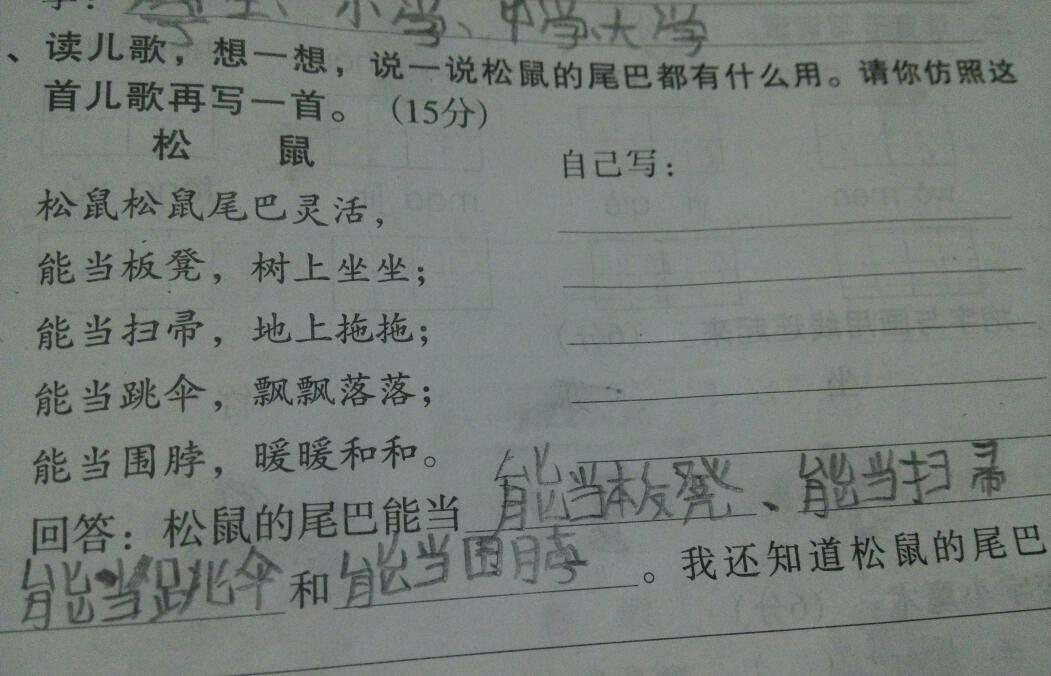 字：学生、小学、中学、大学
、读儿歌，想一想，说一说松鼠的尾巴都有什么用。请你仿照这
首儿歌再写一首。（15分）
松 鼠
自己写：
松鼠松鼠尾巴灵活，
能当板凳，树上坐坐；
能当扫帚，地上拖拖；
能当跳伞，飘飘落落；
能当围脖，暖暖和和。
回答：松鼠的尾巴能当能当板凳、能当扫帚
能当跳伞和能当围脖。我还知道松鼠的尾巴